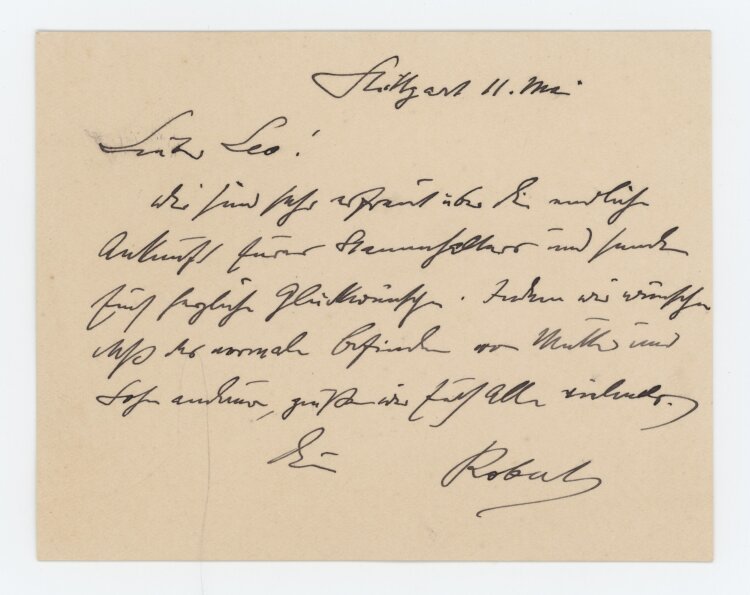 Stuttgart 11. Mai
Lieber Leo!
Wir sind sehr erfreut über die endliche
Ankunft Eures Stammhalters und senden
Euch herzliche Glückwünsche. Indem wir wünschen
daß das normale Befinden von Mutter und
Sohn andauere, grüßen wir Euch Alle vielmals.
Dein Robert